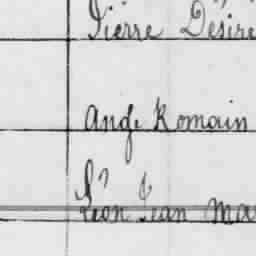 Pierre Désiré
Ange Romain
Léon Jean Ma